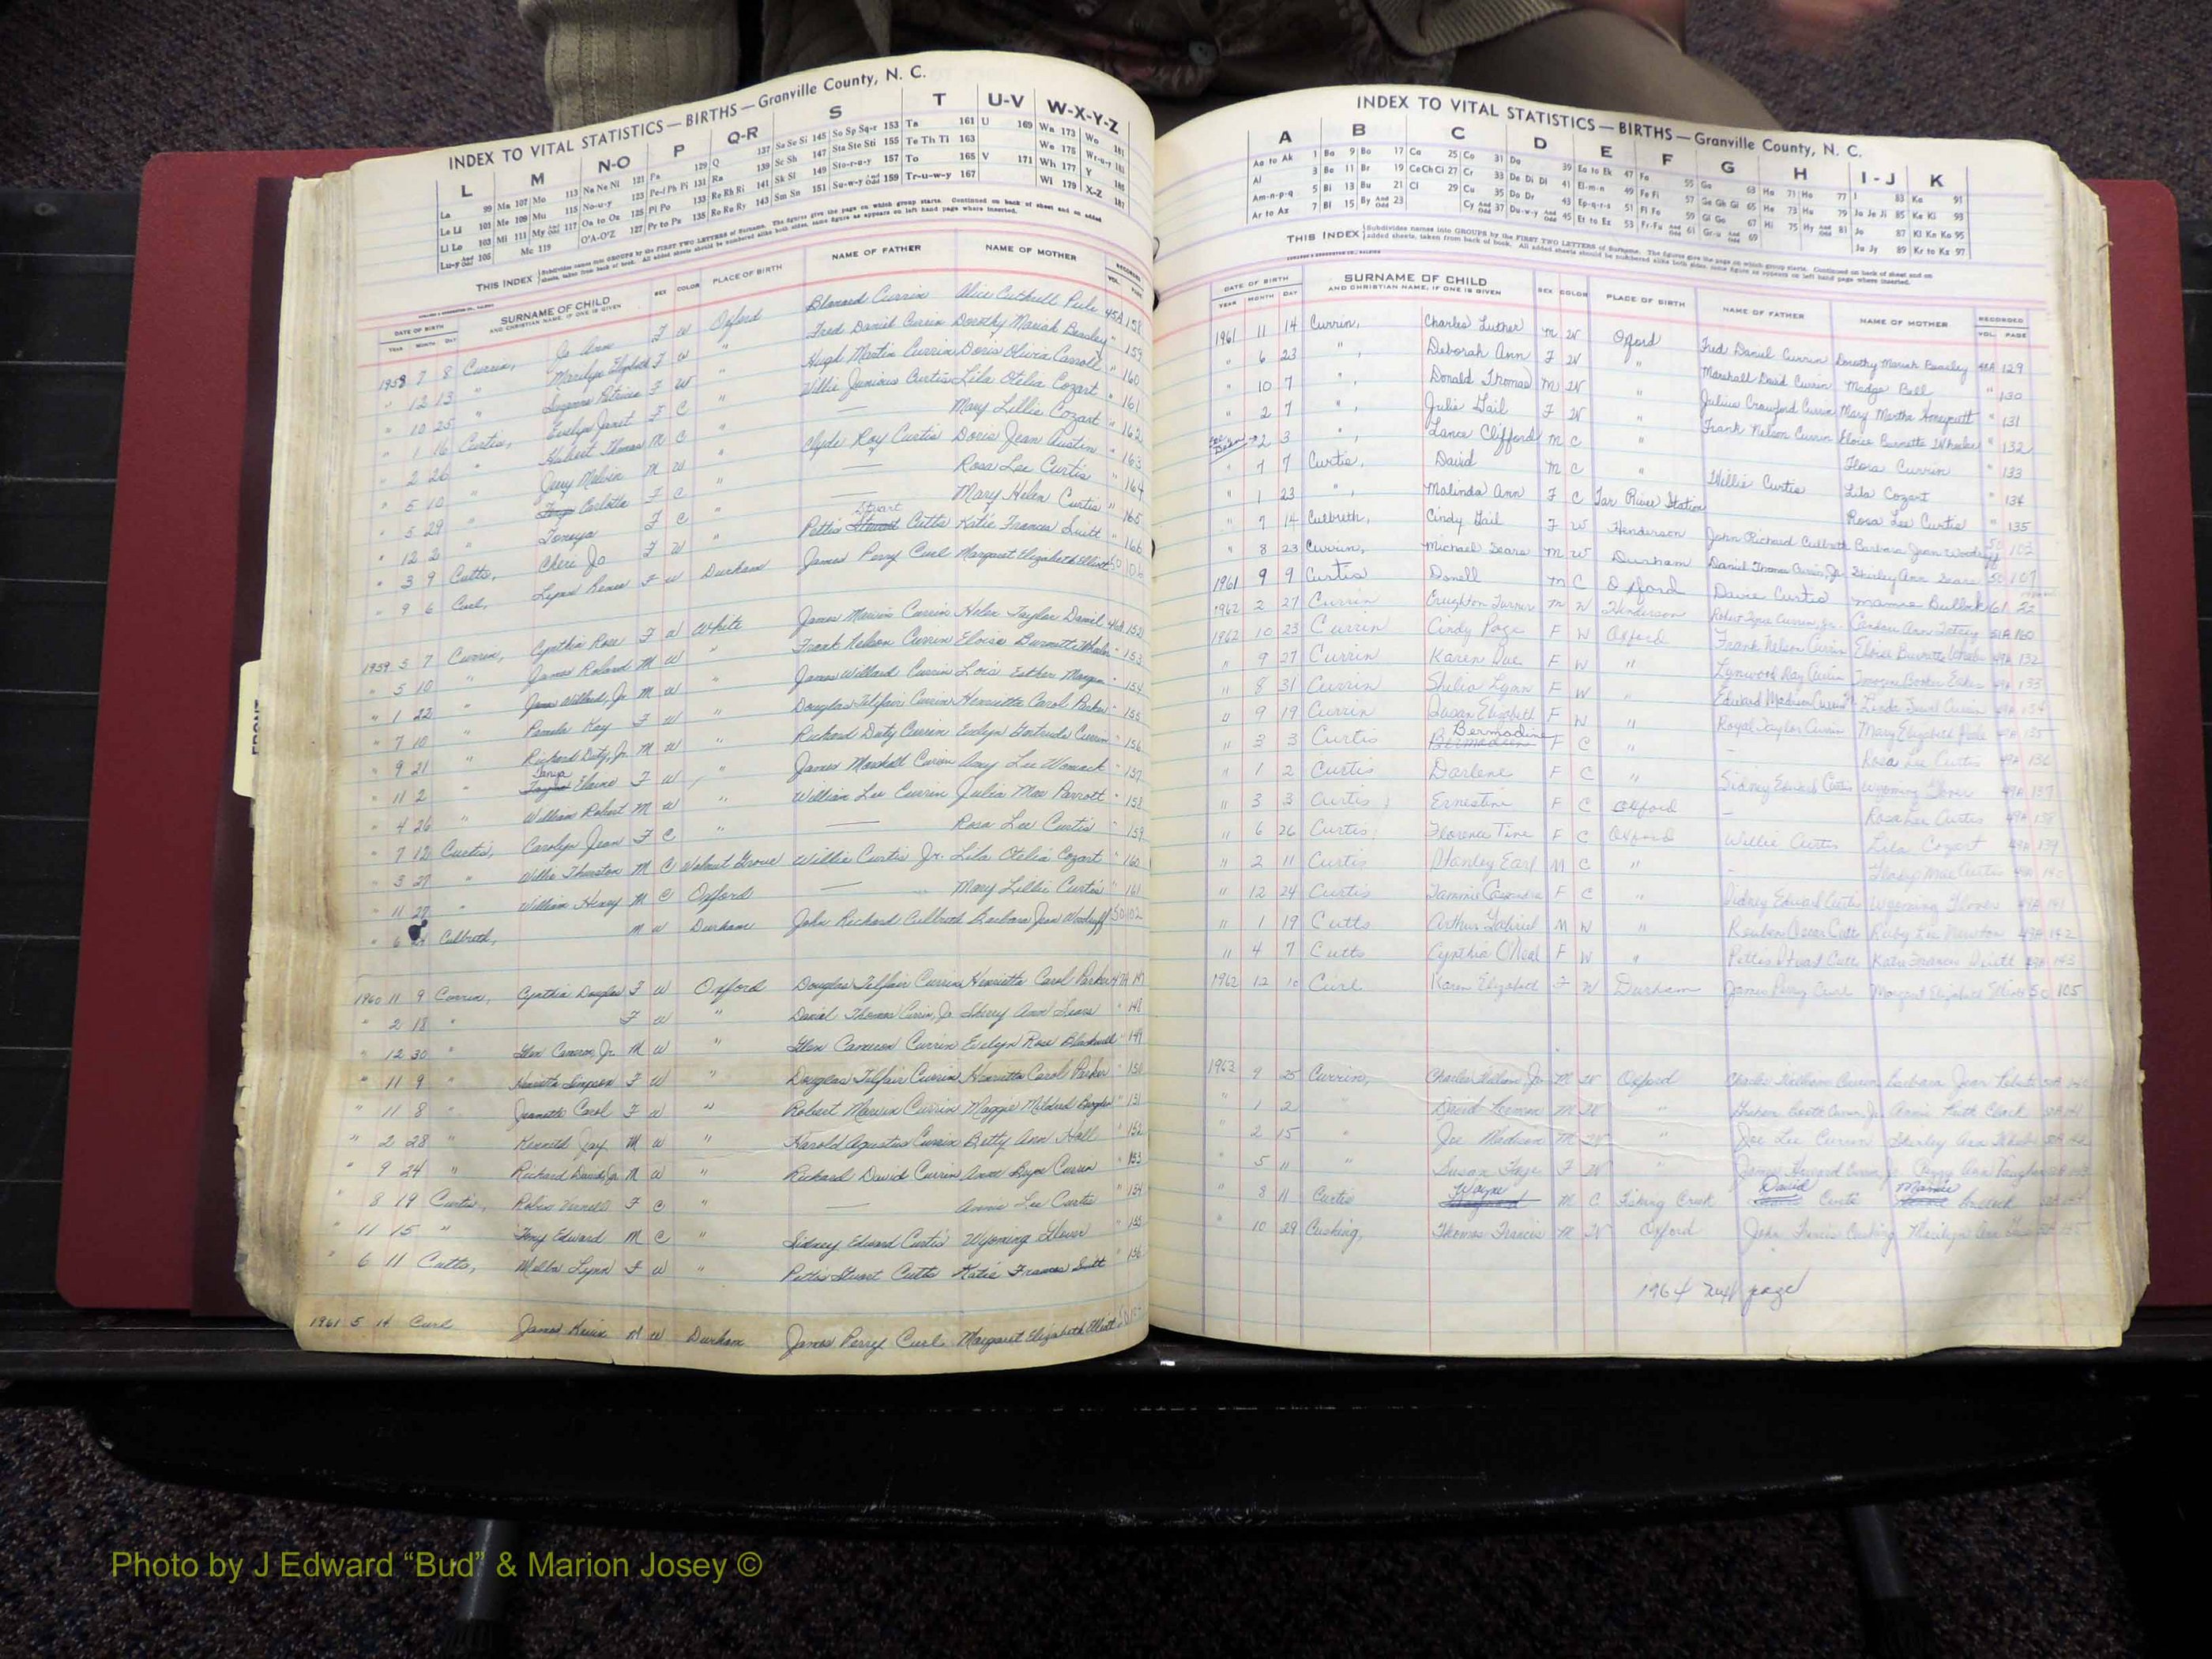 INDEX TO VITAL STATISTICS — BIRTHS — Granville County, N. C.
L M N-O P Q-R S T U-V W-X-Y-Z
La 99 Ma 107 Mo 113 Na Ne Ni 121 Pa 129 Q 137 Sa Se Si 145 So Sp Sq-r 153 Ta 161 U 169 Wa 173 Wo 181
Le Li 101 Me 109 Mu 115 No-u-y 123 Pe-f Ph Pi 131 Ra 139 Sc Sh 147 Sta Ste Sti 155 Te Th Ti 163 We 175 Wr-u-y 183
Ll Lo 103 Mi 111 My And Odd 117 Oa to Oz 125 Pl Po 133 Re Rh Ri 141 Sk Sl 149 Sto-r-u-y 157 To 165 V 171 Wh 177 Y 185
Lu-y And Odd 105 Mc 119 O'A-O'Z 127 Pr to Pu 135 Ro Ru Ry 143 Sm Sn 151 Su-w-y And Odd 159 Tr-u-w-y 167 Wi 179 X-Z 187
THIS INDEX Subdivides names into GROUPS by the FIRST TWO LETTERS of Surname. The figures give the page on which group starts. Continued on back of sheet and on added
sheets, taken from back of book. All added sheets should be numbered alike both sides, same figure as appears on left hand page where inserted.
DATE OF BIRTH SURNAME OF CHILD SEX COLOR PLACE OF BIRTH NAME OF FATHER NAME OF MOTHER RECORDED
YEAR MONTH DAY AND CHRISTIAN NAME, IF ONE IS GIVEN VOL. PAGE
1958 7 8 Currin, Jo Ann F W Oxford Blanard Currin Alice Cuthrell Pule 45A 158
" 12 13 " Marilyn Elizabeth F W " Fred Daniel Currin Dorothy Mariah Beasley " 159
" 10 25 " Suzanne Patricia F W " Hugh Martin Currin Doris Olivia Carroll " 160
" 1 16 Curtis, Evelyn Janet F C " Willie Junious Curtis Lila Otelia Cozart " 161
" 2 26 " Hubert Thomas M C " — Mary Lillie Cozart " 162
" 5 10 " Jerry Melvin M W " Clyde Roy Curtis Doris Jean Austin " 163
" 5 29 " Carlotta F C " — Rosa Lee Curtis " 164
" 12 2 " Tonaya F C " — Mary Helen Curtis " 165
" 3 9 Cutts, Cheri Jo F W " Pettis Stuart Cutts Katie Frances Suitt " 166
" 9 6 Curl, Lynn Renee F W Durham James Perry Curl Margaret Elizabeth Elliott 50 106
1959 5 7 Currin, Cynthia Rose F W White James Marvin Currin Helen Taylor Daniel 46A 152
" 5 10 " James Roland M W " Frank Nelson Currin Eloise Burnette Whaler " 153
" 1 22 " James Willard, Jr. M W " James Willard Currin Lois Esther Morgan " 154
" 7 10 " Pamela Kay F W " Douglas Telfair Currin Henrietta Carol Parker " 155
" 9 21 " Richard Duty, Jr. M W " Richard Duty Currin Evelyn Gertrude Currin " 156
" 11 2 " Tanya Elaine F W " James Marshall Currin Amy Lee Womack " 157
" 4 26 " William Robert M W " William Lee Currin Julia Mae Parrott " 158
" 7 12 Curtis, Carolyn Jean F C " — Rosa Lee Curtis " 159
" 3 27 " Willie Thurston M C Walnut Grove Willie Curtis Jr. Lila Otelia Cozart " 160
" 11 29 " William Henry M C Oxford — Mary Lillie Curtis " 161
" 6 Culbreth, M W Durham John Richard Culbreth Barbara Jean Woodruff 50 102
1960 11 9 Currin, Cynthia Douglas F W Oxford Douglas Telfair Currin Henrietta Carol Parker 47A 147
" 2 18 " F W " Daniel Thomas Currin, Jr. Sherry Ann Sears " 148
" 12 30 " Glen Cameron, Jr. M W " Glen Cameron Currin Evelyn Rose Blackwell " 149
" 11 9 " Henrietta Simpson F W " Douglas Telfair Currin Henrietta Carol Parker " 150
" 11 8 " Jeanette Carol F W " Robert Marvin Currin Maggie Mildred " 151
" 2 28 " Kenneth Jay M W " Harold Agustus Currin Betty Ann Hall " 152
" 9 24 " Richard David, Jr. M W " Richard David Currin Anne Currin " 153
" 8 19 Curtis, Robin Vernell F C " — Annie Lee Curtis " 154
" 11 15 " Tony Edward M C " Sidney Edward Curtis Wyoming Glover " 155
" 6 11 Cutts, Melba Lynn F W " Pettis Stuart Cutts Katie Frances Suitt " 156
1961 5 14 Curl James Kevin M W Durham James Perry Curl Margaret Elizabeth Elliott
INDEX TO VITAL STATISTICS — BIRTHS — Granville County, N. C.
A B C D E F G H I-J K
Aa to Ak 1 Ba 9 Bo 17 Ca 25 Co 31 Da 39 Ea to Ek 47 Fa 55 Ga 63 Ha 71 Ho 77 I 83 Ka 91
Al 3 Be 11 Br 19 Ce Ch Ci 27 Cr 33 De Di Dl 41 El-m-n 49 Fe Fi 57 Ge Gh Gi 65 He 73 Hu 79 Ja Je Ji 85 Ke Ki 93
Am-n-p-q 5 Bi 13 Bu 21 Cl 29 Cu 35 Do Dr 43 Ep-q-r-s 51 Fl Fo 59 Gl Go 67 Hi 75 Hy And Odd 81 Jo 87 Kl Kn Ko 95
Ar to Az 7 Bl 15 By And Odd 23 Cy And Odd 37 Du-w-y And Odd 45 Et to Ez 53 Fr-Fu And Odd 61 Gr-u And Odd 69 Ju Jy 89 Kr to Kz 97
THIS INDEX Subdivides names into GROUPS by the FIRST TWO LETTERS of Surname. The figures give the page on which group starts. Continued on back of sheet and on
added sheets, taken from back of book. All added sheets should be numbered alike both sides, same figure as appears on left hand page where inserted.
DATE OF BIRTH SURNAME OF CHILD SEX COLOR PLACE OF BIRTH NAME OF FATHER NAME OF MOTHER RECORDED
YEAR MONTH DAY AND CHRISTIAN NAME, IF ONE IS GIVEN VOL. PAGE
1961 11 14 Currin, Charles Luther M W Oxford Fred Daniel Currin Dorothy Mariah Beasley 48A 129
" 6 23 " , Deborah Ann F W " Marshall David Currin Madge Bell " 130
" 10 7 " , Donald Thomas M W " Julius Crawford Currin Mary Martha Honeycutt " 131
" 2 7 " , Julie Gail F W " Frank Nelson Currin Eloise Burnette Whaler " 132
2 3 " , Lance Clifford M C " Flora Currin " 133
" 7 7 Curtis, David M C " Willie Curtis Lila Cozart " 134
" 1 23 " , Malinda Ann F C Tar River Station Rosa Lee Curtis " 135
" 7 14 Culbreth, Cindy Gail F W Henderson John Richard Culbreth Barbara Jean Woodruff 50 102
" 8 23 Currin, Michael Sears M W Durham Daniel Thomas Currin, Jr. Shirley Ann Sears 50 107
1961 9 9 Curtis Donell M C Oxford Davie Curtis Mamie Bullock 61 22
1962 2 27 Currin Creighton Turner M W Henderson Robert Tyree Currin, Jr. Ann 51A 160
1962 10 23 Currin Cindy Page F W Oxford Frank Nelson Currin Eloise Burnette Whaler 49A 132
" 9 27 Currin Karen Sue F W " Lynwood Ray Currin Imogene Booker Eakes 49A 133
" 8 31 Currin Shelia Lynn F W " Edward Madison Currin Linda Currin 49A 134
" 9 19 Currin Susan Elizabeth F W " Royal Taylor Currin Mary Elizabeth 49A 135
" 3 3 Curtis Bermadine F C " - Rosa Lee Curtis 49A 136
" 1 2 Curtis Darlene F C " Sidney Edward Curtis Wyoming Glover 49A 137
" 3 3 Curtis Ernestine F C Oxford - Rosa Lee Curtis 49A 138
" 6 26 Curtis Florence Tine F C Oxford Willie Curtis Lila Cozart 49A 139
" 2 11 Curtis Stanley Earl M C " - Gladys Mae Curtis 49A 140
" 12 24 Curtis Tammie Cassandra F C " Sidney Edward Curtis Wyoming Glover 49A 141
" 1 19 Cutts Arthur Gabriel M W " Reuben Oscar Cutts Ruby Lee Newton 49A 142
" 4 7 Cutts Cynthia O'Neal F W " Pettis Stuart Cutts Katie Frances Suitt 49A 143
1962 12 10 Curl Karen Elizabeth F W Durham James Perry Curl Margaret Elizabeth Elliott 50 105
1963 9 25 Currin, Charles William Jr. M W Oxford Charles William Currin Barbara Jean Roberts
" 1 2 " David Leemon M W " Graham Currin Jr. Annie Ruth Clark
" 2 15 " Joe Madison M W " Joe Lee Currin Shirley Ann
" 5 11 " Susan Faye F W " James Howard Currin Jr. Peggy Ann Vaughan
" 8 11 Curtis Wayne M C Fishing Creek David Curtis Mamie Bullock
" 10 29 Cushing, Thomas Francis M W Oxford John Francis Cushing Marilyn Ann
1964 next page
Photo by J Edward “Bud” & Marion Josey ©